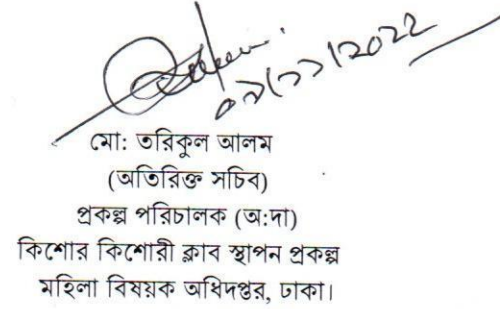 ০৯/১১/২০২২
মো: তরিকুল আলম
(অতিরিক্ত সচিব)
প্রকল্প পরিচালক (অ:দা)
কিশোর কিশোরী ক্লাব স্থাপন প্রকল্প
মহিলা বিষয়ক অধিদপ্তর, ঢাকা।